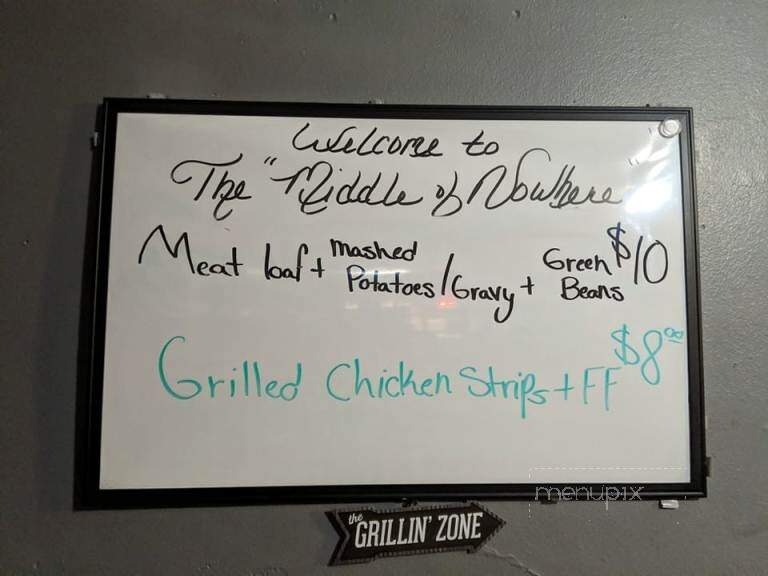 Welcome to
The "Middle of Nowhere
Meat loaf + Mashed Potatoes / Gravy + Green Beans $10
Grilled Chicken Strips + FF $8.00
menupix
the GRILLIN' ZONE